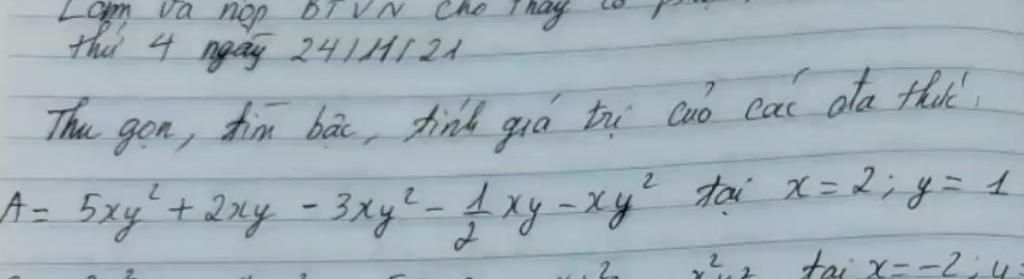 Làm và nộp BTVN cho thầy cô
thứ 4 ngày 24/11/21
Thu gọn, tìm bậc, tính giá trị của các đa thức.
A = 5xy² + 2xy - 3xy² - 1/2 xy - xy² tại x = 2; y = 1
tại x = -2; y